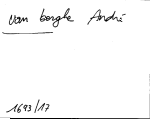 van bergle André
1693/17